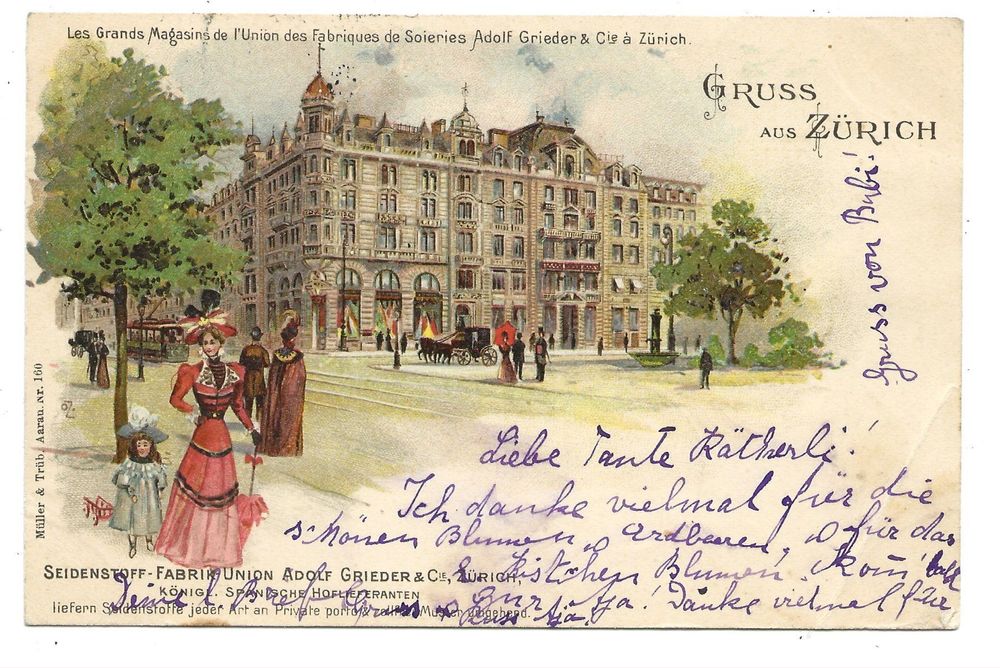 Les Grands Magasins de l'Union des Fabriques de Soieries Adolf Grieder & Cie à Zürich.
GRUSS
AUS ZÜRICH
Gruss von Bubi!
Liebe Tante Kätherli!
Ich danke vielmal für die
schönen Blumen, Erdbeeren, für das
Kistchen Blumen! Kom' bald
zu ja! Danke vielmal für
Deine Brief Gruss & Kuss
SEIDENSTOFF-FABRIK UNION ADOLF GRIEDER & CIE, ZÜRICH.
KÖNIGL. SPANISCHE HOFLIEFERANTEN
liefern Seidenstoffe jeder Art an Private porto & zollfrei Muster umgehend.
Müller & Trüb, Aarau. Nr. 160